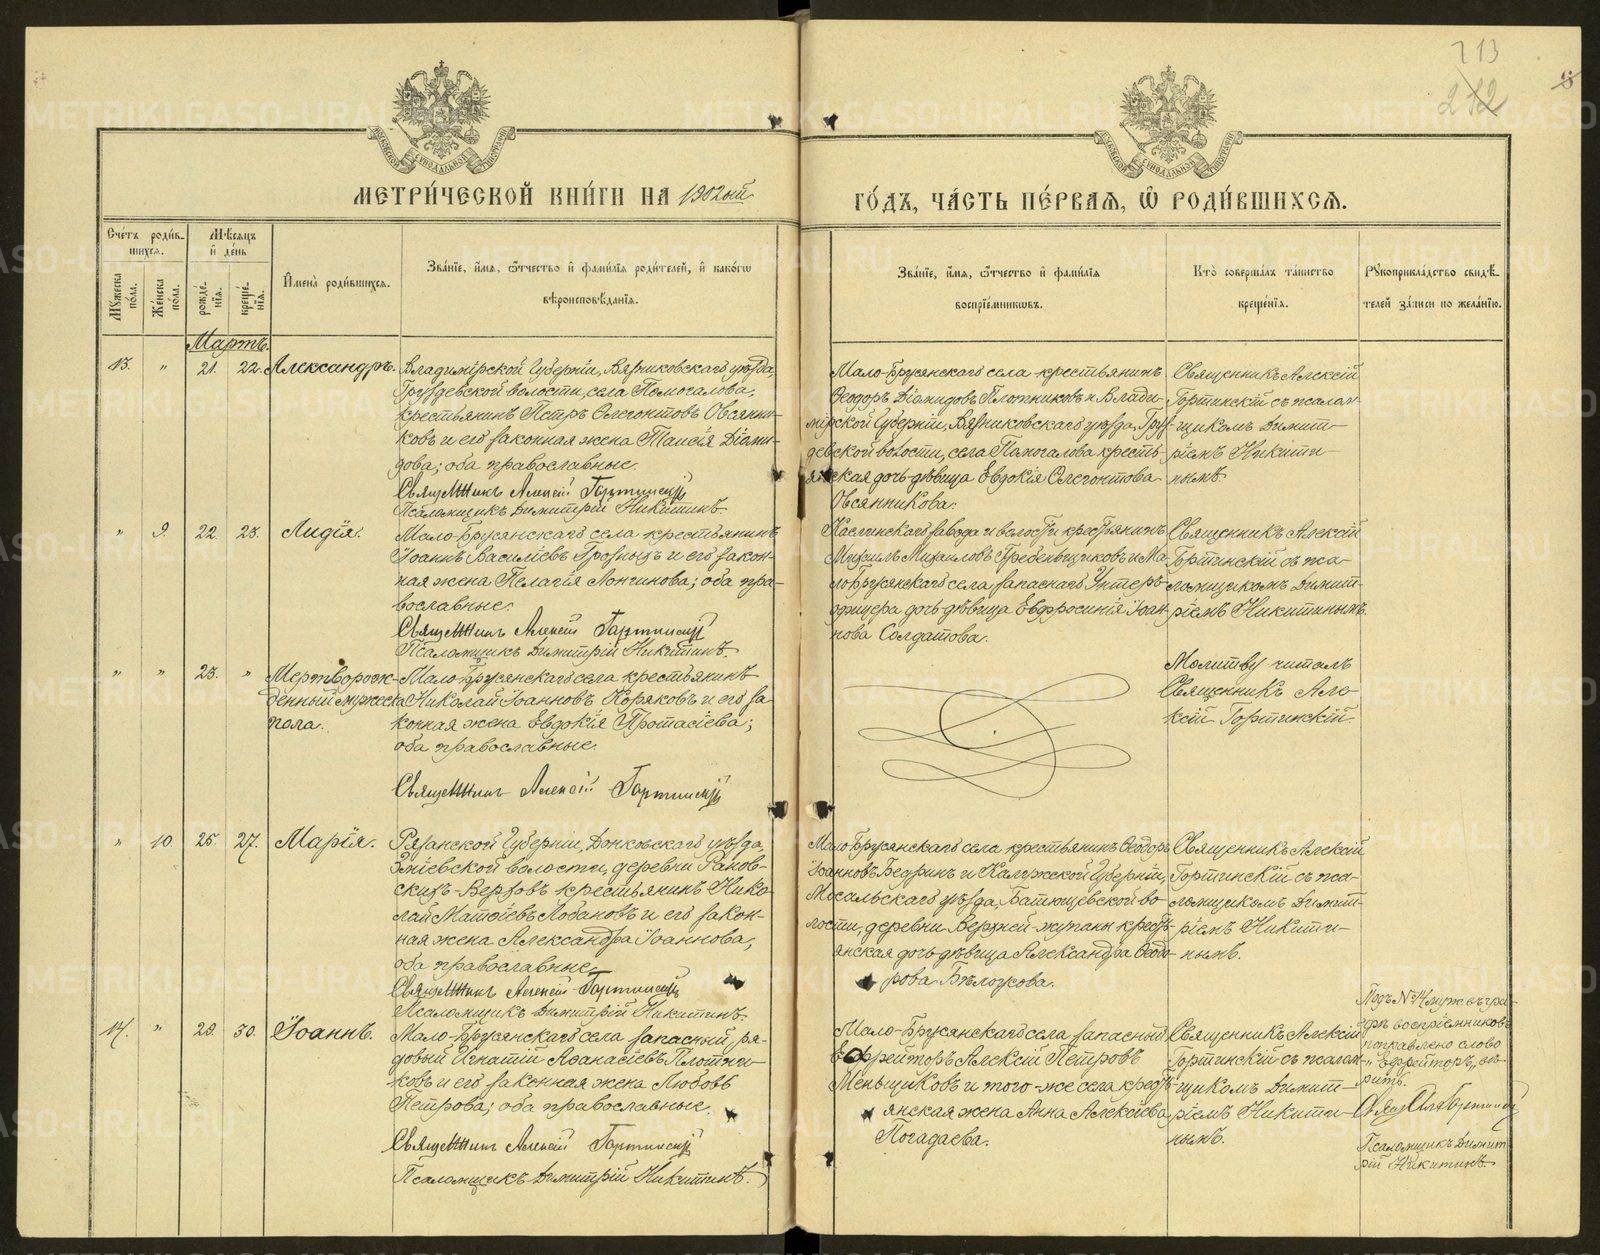 713
212
МЕТРИ́ЧЕСКОЙ КНИ́ГИ НА 1902ый
ГО́ДЪ, ЧА́СТЬ ПЕ́РВАѦ, Ѡ҆ РОДИ́ВШИХСѦ.
Сче́тъ роди́в-
шихсѧ.
Мꙋ́жеска по́ла.
Же́нска по́ла.
Мѣ́сѧцъ и҆ де́нь
рожде́-нїѧ.
креще́-нїѧ.
И҆мена̀ роди́вшихсѧ.
Зва́нїе, и҆́мѧ, ѻ҆́тчество и҆ фами́лїѧ роди́телей, и҆ како́гѡ
вѣроисповѣ́данїѧ.
Зва́нїе, и҆́мѧ, ѻ҆́тчество и҆ фами́лїѧ
воспрїе́мникѡвъ.
Кто̀ соверша́лъ та́инство
креще́нїѧ.
Рꙋкоприкла́дство свидѣ́-
телей за́писи по жела́нїю.
Мартъ.
13. " 21. 22. Александръ.
Владимірской Губерніи, Вязниковскаго уѣзда,
Груздевской волости, села Помогалова,
крестьянинъ Петръ Олегонтовъ Овсянни-
ковъ и его законная жена Таисія Діоми-
дова; оба православные.
Священникъ Алексій Гортинскій
Псаломщикъ Димитрій Никитинъ.
Мало-Брусянскаго села крестьянинъ
Ѳеодоръ Діомидовъ Плотниковъ и Влади-
мірской Губерніи, Вязниковскаго уѣзда, Груз-
девской волости, села Помогалова кресть-
янская дочь-дѣвица Евдокія Олегонтова
Овсянникова.
Священникъ Алексій
Гортинскій съ псалом-
щикомъ Димит-
ріемъ Никити-
нымъ.
" 9. 22. 23. Лидія.
Мало-Брусянскаго села крестьянинъ
Іоаннъ Василіевъ Грозныхъ и его закон-
ная жена Пелагія Лонгинова; оба пра-
вославные.
Священникъ Алексій Гортинскій
Псаломщикъ Димитрій Никитинъ.
Каслинскаго завода и волости крестьянинъ
Михаилъ Михаиловъ Гребеньщиковъ и Ма-
ло-Брусянскаго села запаснаго Унтеръ-
офицера дочь-дѣвица Евфросинія Іоан-
нова Солдатова.
Священникъ Алексій
Гортинскій съ пса-
ломщикомъ Димит-
ріемъ Никитинымъ.
" " 23. " Мертворож-
денный мужеска
пола.
Мало-Брусянскаго села крестьянинъ
Николай Іоанновъ Коряковъ и его за-
конная жена Евдокія Протасіева;
оба православные.
Священникъ Алексій Гортинскій
Молитву читалъ
Священникъ Але-
ксій Гортинскій.
" 10. 25. 27. Марія.
Рязанской Губерніи, Донковскаго уѣзда,
Змievской волости, деревни Ранов-
скихъ-Верховъ крестьянинъ Нико-
лай Матѳіевъ Лобановъ и его закон-
ная жена Александра Іоаннова;
оба православные.
Священникъ Алексій Гортинскій
Псаломщикъ Димитрій Никитинъ.
Мало-Брусянскаго села крестьянинъ Ѳеодоръ
Іоанновъ Бедринъ и Калужской Губерніи,
Мосальскаго уѣзда, Батющевской во-
лости, деревни Верхней-жупаны кресть-
янская дочь-дѣвица Александра Ѳеодо-
рова Бѣлоусова.
Священникъ Алексій
Гортинскій съ пса-
ломщикомъ Димит-
ріемъ Никити-
нымъ.
14. " 28. 30. Іоаннъ.
Мало-Брусянскаго села запасный ря-
довый Игнатій Аѳанасіевъ Плотни-
ковъ и его законная жена Любовь
Петрова; оба православные.
Священникъ Алексій Гортинскій
Псаломщикъ Димитрій Никитинъ.
Мало-Брусянскаго села запасный
Ефрейторъ Алексій Петровъ
Меньщиковъ и того-же села кресть-
янская жена Анна Алексіева
Погадаева.
Священникъ Алексій
Гортинскій съ псалом-
щикомъ Димит-
ріемъ Никити-
нымъ.
Подъ № 14 муж. въ гра-
фѣ воспріемниковъ
поправлено слово
"Ефрейторъ" вѣ-
рить.
Свящ. Ал. Гортинскій
Псаломщикъ Димит-
рій Никитинъ.
METRIKI.GASO-URAL.RU